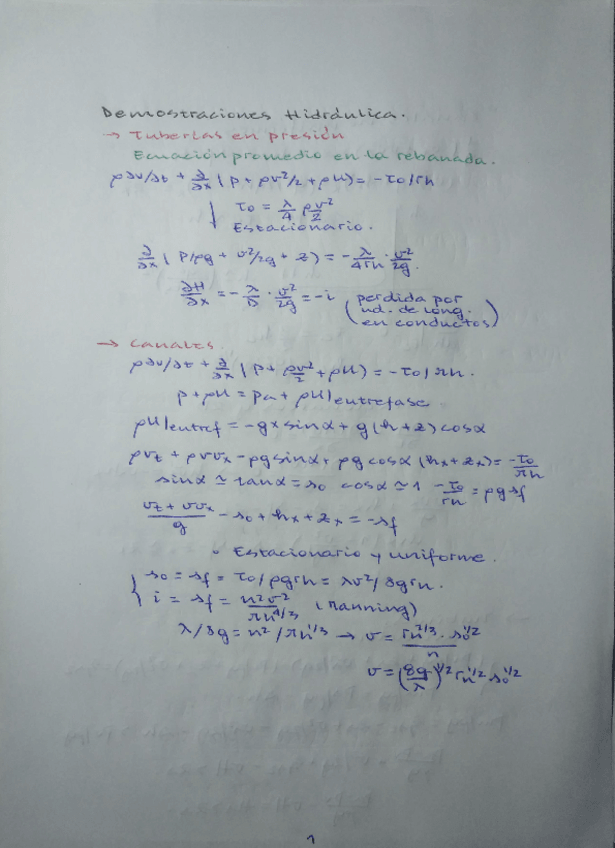 Demostraciones Hidráulica.
→ Tuberías en presión
Ecuación promedio en la rebanada.
ρ∂v/∂t + ∂/∂x (p + ρv²/2 + ρU) = -τ₀/rh
↓ τ₀ = λ/4 ρv²/2
Estacionario.
∂/∂x (P/ρg + v²/2g + z) = -λ/4rh · v²/2g.
∂H/∂x = -λ/D · v²/2g = -i (perdida por ud. de long. en conductos)
→ Canales.
ρ∂v/∂t + ∂/∂x (p + ρv²/2 + ρU) = -τ₀/rh.
p + ρU = pa + ρU|entrefase
ρU|entref = -gx sinα + g(h+z) cosα
ρvt + ρvvx - ρg sinα + ρg cosα (hx + zx) = -τ₀/rh
sinα ≃ tanα = s₀ cosα ≃ 1 -τ₀/rh = ρg sf
(vt + vvx)/g - s₀ + hx + zx = -sf
• Estacionario y uniforme.
s₀ = sf = τ₀/ρgrh = λv²/8grh.
i = sf = n²v²/rh^4/3 (Manning)
λ/8g = n²/rh^1/3 → v = rh^2/3 · s₀^1/2 / n
v = (8g/λ)^1/2 rh^1/2 s₀^1/2
1